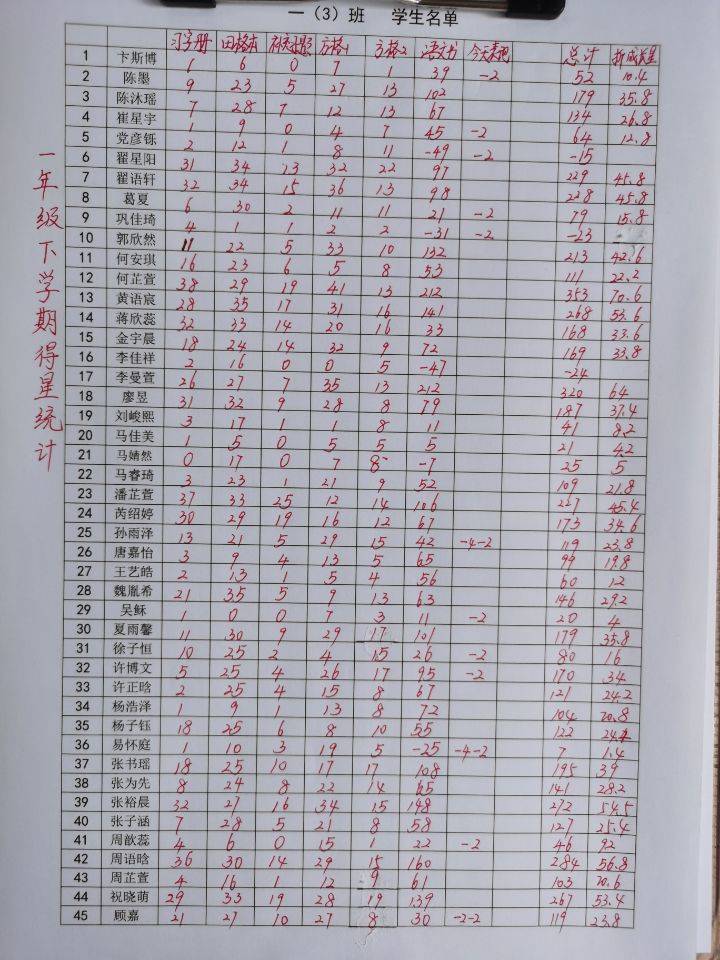 一（3）班 学生名单
习字册 田格本 方格1 方格2 语文书 总计 折成长星
1 卞斯博 1 6 0 7 1 39 -2 52 10.4
2 陈墨 9 23 5 27 13 102 179 35.8
3 陈沐瑶 7 28 7 12 13 67 134 26.8
4 崔星宇 1 9 0 4 7 45 -2 64 12.8
5 党彦铄 2 12 1 8 11 -49 -2 -15
6 翟星阳 31 34 13 32 22 97 229 45.8
7 翟语轩 32 34 15 36 13 98 228 45.8
8 葛夏 6 30 2 11 11 21 -2 79 15.8
9 巩佳琦 4 1 1 2 2 -31 -2 -23
10 郭欣然 11 22 5 33 10 132 213 42.6
11 何安琪 16 23 6 5 8 53 111 22.2
12 何芷萱 38 29 19 41 13 212 353 70.6
13 黄语宸 28 35 17 31 16 141 268 53.6
14 蒋欣蕊 32 33 14 20 16 33 168 33.6
15 金宇晨 18 24 14 32 9 72 169 33.8
16 李佳祥 2 16 0 0 5 -47 -24
17 李曼萱 26 27 7 35 13 212 320 64
18 廖昱 31 32 9 28 8 79 187 37.4
19 刘峻熙 3 17 1 1 8 11 41 8.2
20 马佳美 1 5 0 5 5 5 21 4.2
21 马婧然 0 17 0 7 8 -7 25 5
22 马睿琦 3 23 1 21 9 52 109 21.8
23 潘芷萱 37 33 25 12 14 106 227 45.4
24 芮绍婷 30 29 19 16 12 67 173 34.6
25 孙雨泽 13 21 5 29 15 42 -4-2 119 23.8
26 唐嘉怡 3 9 4 13 5 65 99 19.8
27 王艺皓 2 13 1 5 4 56 60 12
28 魏胤希 21 35 5 9 13 63 146 29.2
29 吴稣 1 0 0 7 3 11 -2 20 4
30 夏雨馨 11 30 9 29 17 101 179 35.8
31 徐子恒 10 25 2 4 15 26 -2 80 16
32 许博文 5 25 4 26 17 95 -2 170 34
33 许正晗 2 25 4 15 8 67 121 24.2
34 杨浩泽 1 9 1 13 8 72 104 20.8
35 杨子钰 18 25 6 8 10 55 122 24.4
36 易怀庭 1 10 3 19 5 -25 -4-2 7 1.4
37 张书瑶 18 25 10 17 17 108 195 39
38 张为先 8 24 8 22 14 65 141 28.2
39 张裕晨 32 27 16 34 15 148 272 54.5
40 张子涵 7 28 5 21 8 58 127 25.4
41 周歆蕊 4 6 0 15 1 22 -2 46 92
42 周语晗 36 30 14 29 15 160 284 56.8
43 周芷萱 4 16 1 12 9 61 103 20.6
44 祝晓萌 29 33 19 28 19 139 267 53.4
45 顾嘉 21 27 10 27 8 30 -2-2 119 23.8
一年级下学期得星统计